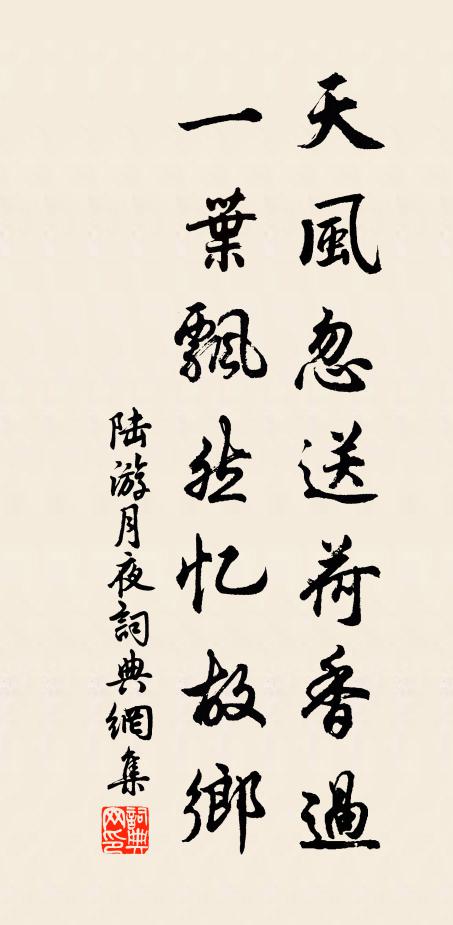 天風忽送荷香過
一葉飄然忆故鄉
陆游月夜詞典網集
詞典网印